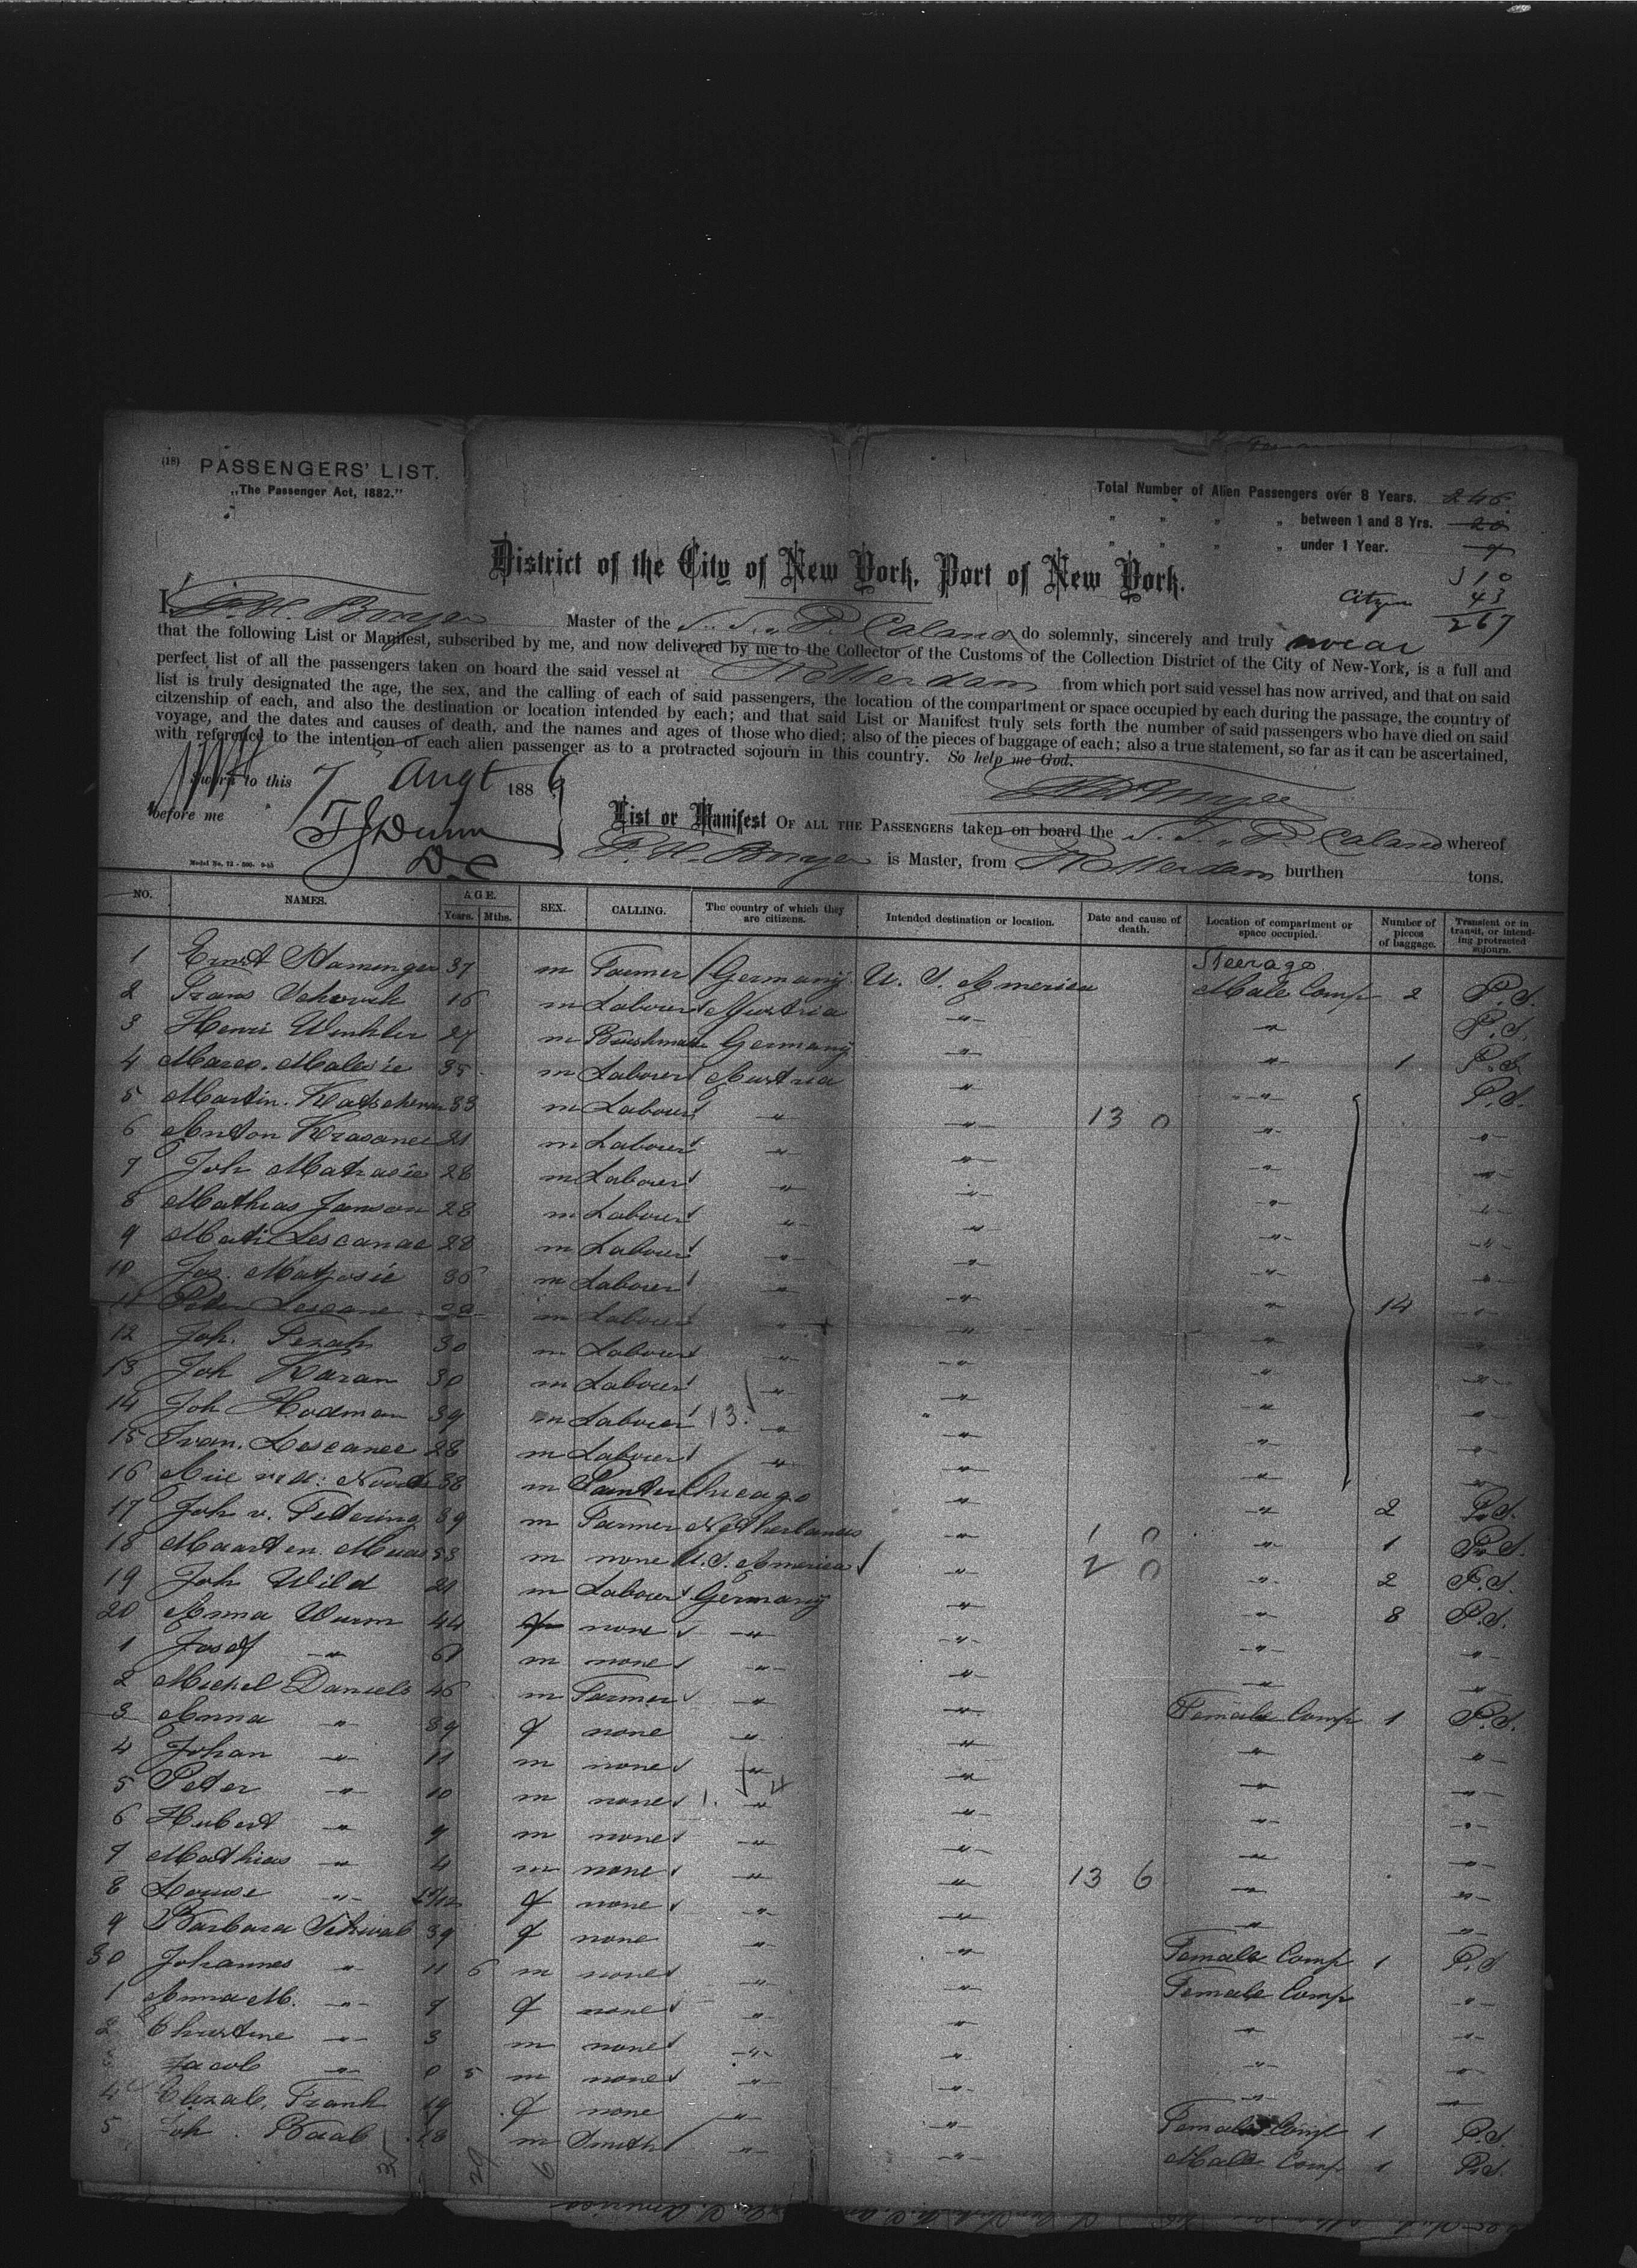 (18) PASSENGERS' LIST.
„The Passenger Act, 1882."
Total Number of Alien Passengers over 8 Years.
" " " „ between 1 and 8 Yrs. 20
" " " „ under 1 Year.
District of the City of New York, Port of New York.
10
43
267
I, Master of the S. S. „P. Caland do solemnly, sincerely and truly swear
that the following List or Manifest, subscribed by me, and now delivered by me to the Collector of the Customs of the Collection District of the City of New-York, is a full and
perfect list of all the passengers taken on board the said vessel at Rotterdam from which port said vessel has now arrived, and that on said
list is truly designated the age, the sex, and the calling of each of said passengers, the location of the compartment or space occupied by each during the passage, the country of
citzenship of each, and also the destination or location intended by each; and that said List or Manifest truly sets forth the number of said passengers who have died on said
voyage, and the dates and causes of death, and the names and ages of those who died; also of the pieces of baggage of each; also a true statement, so far as it can be ascertained,
with reference to the intention of each alien passenger as to a protracted sojourn in this country. So help me God.
Sworn to this 7 Augt 1886
before me TJ Dunn
D.C
List or Manifest OF ALL THE PASSENGERS taken on board the S. S. „P. Caland whereof
is Master, from Rotterdam burthen tons.
NO. NAMES. AGE. Years. Mths. SEX. CALLING. The country of which they are citizens. Intended destination or location. Date and cause of death. Location of compartment or space occupied. Number of pieces of baggage. Transient or in transit, or intending protracted sojourn.
Steerage
1 Ernst 37 m Farmer Germany U. S. America Male Comp 2 P.S.
2 Frans 16 m Labourer Austria " " P.S.
3 Henri Winkler 27 m Germany " " 1 P.S.
4 Marco. 35 m Labourer Austria " " P.S.
5 Martin. 33 m Labourer " " 13 0 " "
6 Anton 21 m Labourer " " " "
7 Joh 28 m Labourer " " " "
8 Mathias Janson 28 m Labourer " " " "
9 Mati 28 m Labourer " " " "
10 Jos. 36 m Labourer " " " 14 "
11 Peter m Labourer " " " "
12 Joh. 30 m Labourer " " " "
13 Joh Karan 30 m Labourer " " " "
14 Joh Hodman 39 m Labourer 13. " " " "
15 Ivan. 28 m Labourer " " " "
16 38 m Painter Chicago " " 2 P.S.
17 Joh v. 39 m Farmer Netherlands " 1 0 " 1 P.S.
18 Maarten. 33 m none U.S. America " 2 0 " 2 P.S.
19 Joh Wild 21 m Labourer Germany " " 8 P.S.
20 Anna Wurm 44 f none " " " "
1 Josef " 61 m none " " " "
2 Michel Daniels 46 m Farmer " " Female Comp 1 P.S.
3 Anna " 39 f none " " " "
4 Johan " 11 m none " " " "
5 Peter " 10 m none " " " "
6 Hubert " 9 m none " " " "
7 Mathias " 4 m none " " 13 6 " "
8 Louise " f none " " " "
9 Barbara Schwab 39 f none " " Female Comp 1 P.S.
30 Johannes " 11 6 m none " " Female Comp "
1 Anna M. " 7 f none " " " "
2 Christine " 3 m none " " " "
Jacob " 0 5 m none " " " "
4 Elizab. Frank 19 f none " " Female Comp 1 P.S.
5 Joh. Baal 18 m Smith " " Male Comp 1 P.S.